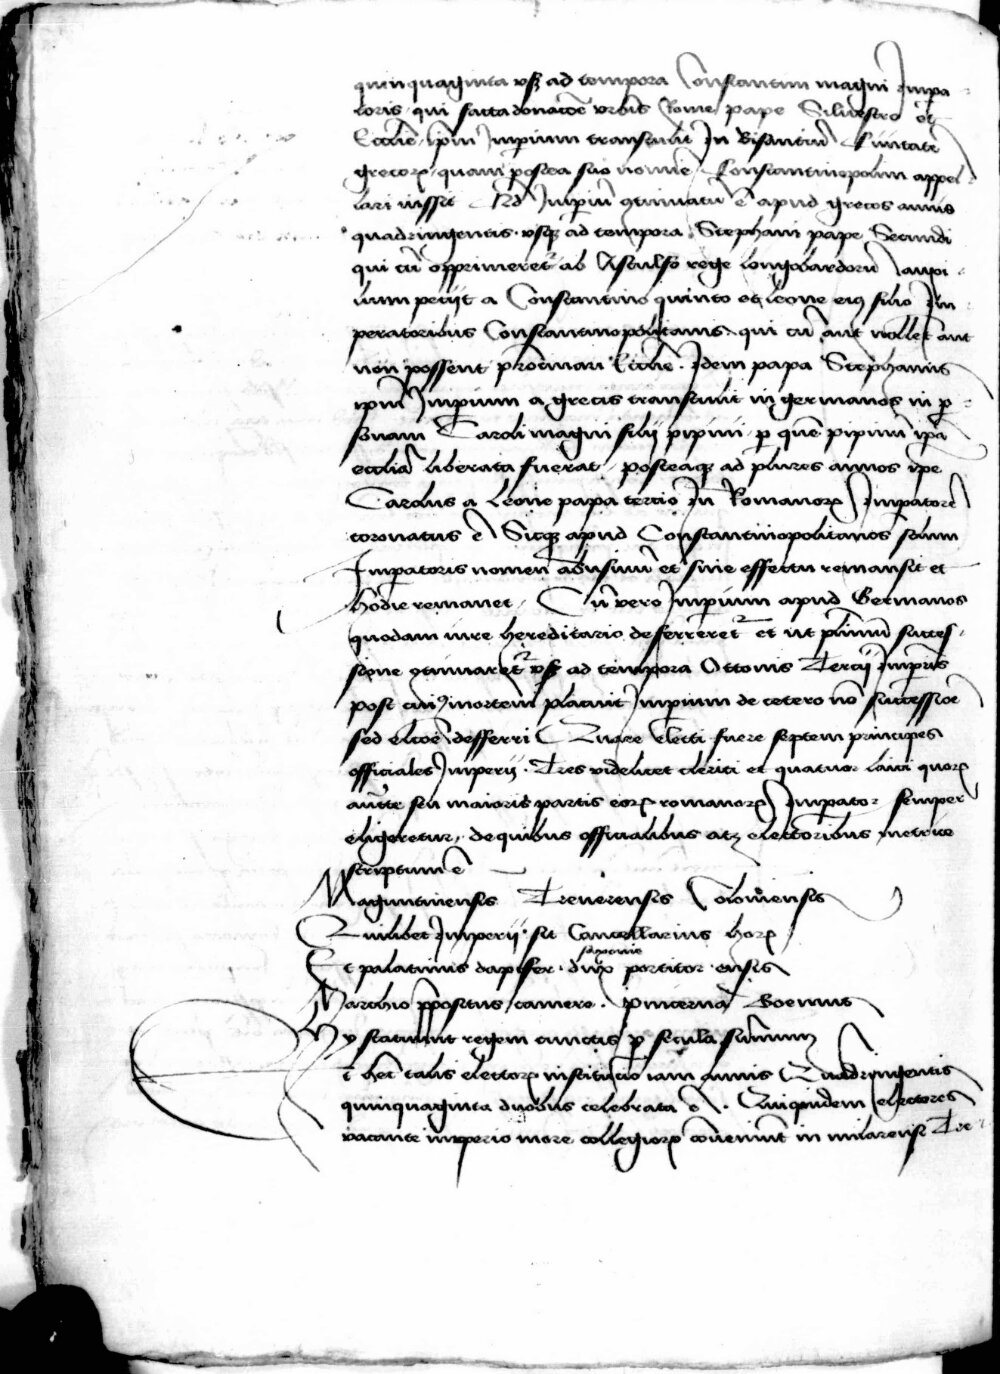 quinquaginta usq ad tempora Constantini magni Impa
toris qui facta donacoe urbis Rome pape Silvestro et
Ecclie ipm Imperium transtulit In Bisantiu Civitate
grecor quam postea suo noie Constantinopolim appel
lari iussit Ad Imperiu gtinuatu e apud grecos annis
quadringentis usq ad tempora Stephani pape Secundi
qui cu opprimeret ab Astulfo rege longobardoru auxi
lium petiit a Constantino quinto et leone eius filio Im
peratoribus Constantinopolitanis qui cu aut nollet aut
non possent Ecclie Idem papa Stephanus
ipm Imperium a grecis transtulit in germanos in p
sonam Caroli magni filij pipini p quem pipinu ipa
ecclia liberata fuerat posteaq ad plures annos ipe
Carolus a leone papa tercio In Romanor Impatore
coronatus e Sicq apud Constantinopolitanos solum
Imperatoris nomen et sine effectu remansit et
hodie remanet Cu vero Imperium apud Germanos
quodam iure hereditario deferreret et ut plimu succes
sione gtinuaret usq ad tempora Ottonis Tercij Imperis
post cui9 mortem placuit Imperium de cetero no successioe
sed elcoe desferri Quare electi fuere septem principes
officiales Imperij Tres videlicet clerici et quatuor laici quor
aucte seu maioris partis eor romanor Impator semper
eligeretur de quibus officialibus atq electoribus metrice
scriptum e
Maguntinensis Treverensis Coloniensis
Quilibet Imperij sit Cancellarius hor
Et palatinus dapifer dux portitor ensis
saxonie
Marchio ppositus camere pincerna Boemus
Hy statuunt regem cunctis p secula summum
Et hec talis elector institucio iam annis Quadringentis
quinquaginta duobus celebrata e Quiquidem electores
vacante imperio more collegior conveniut in